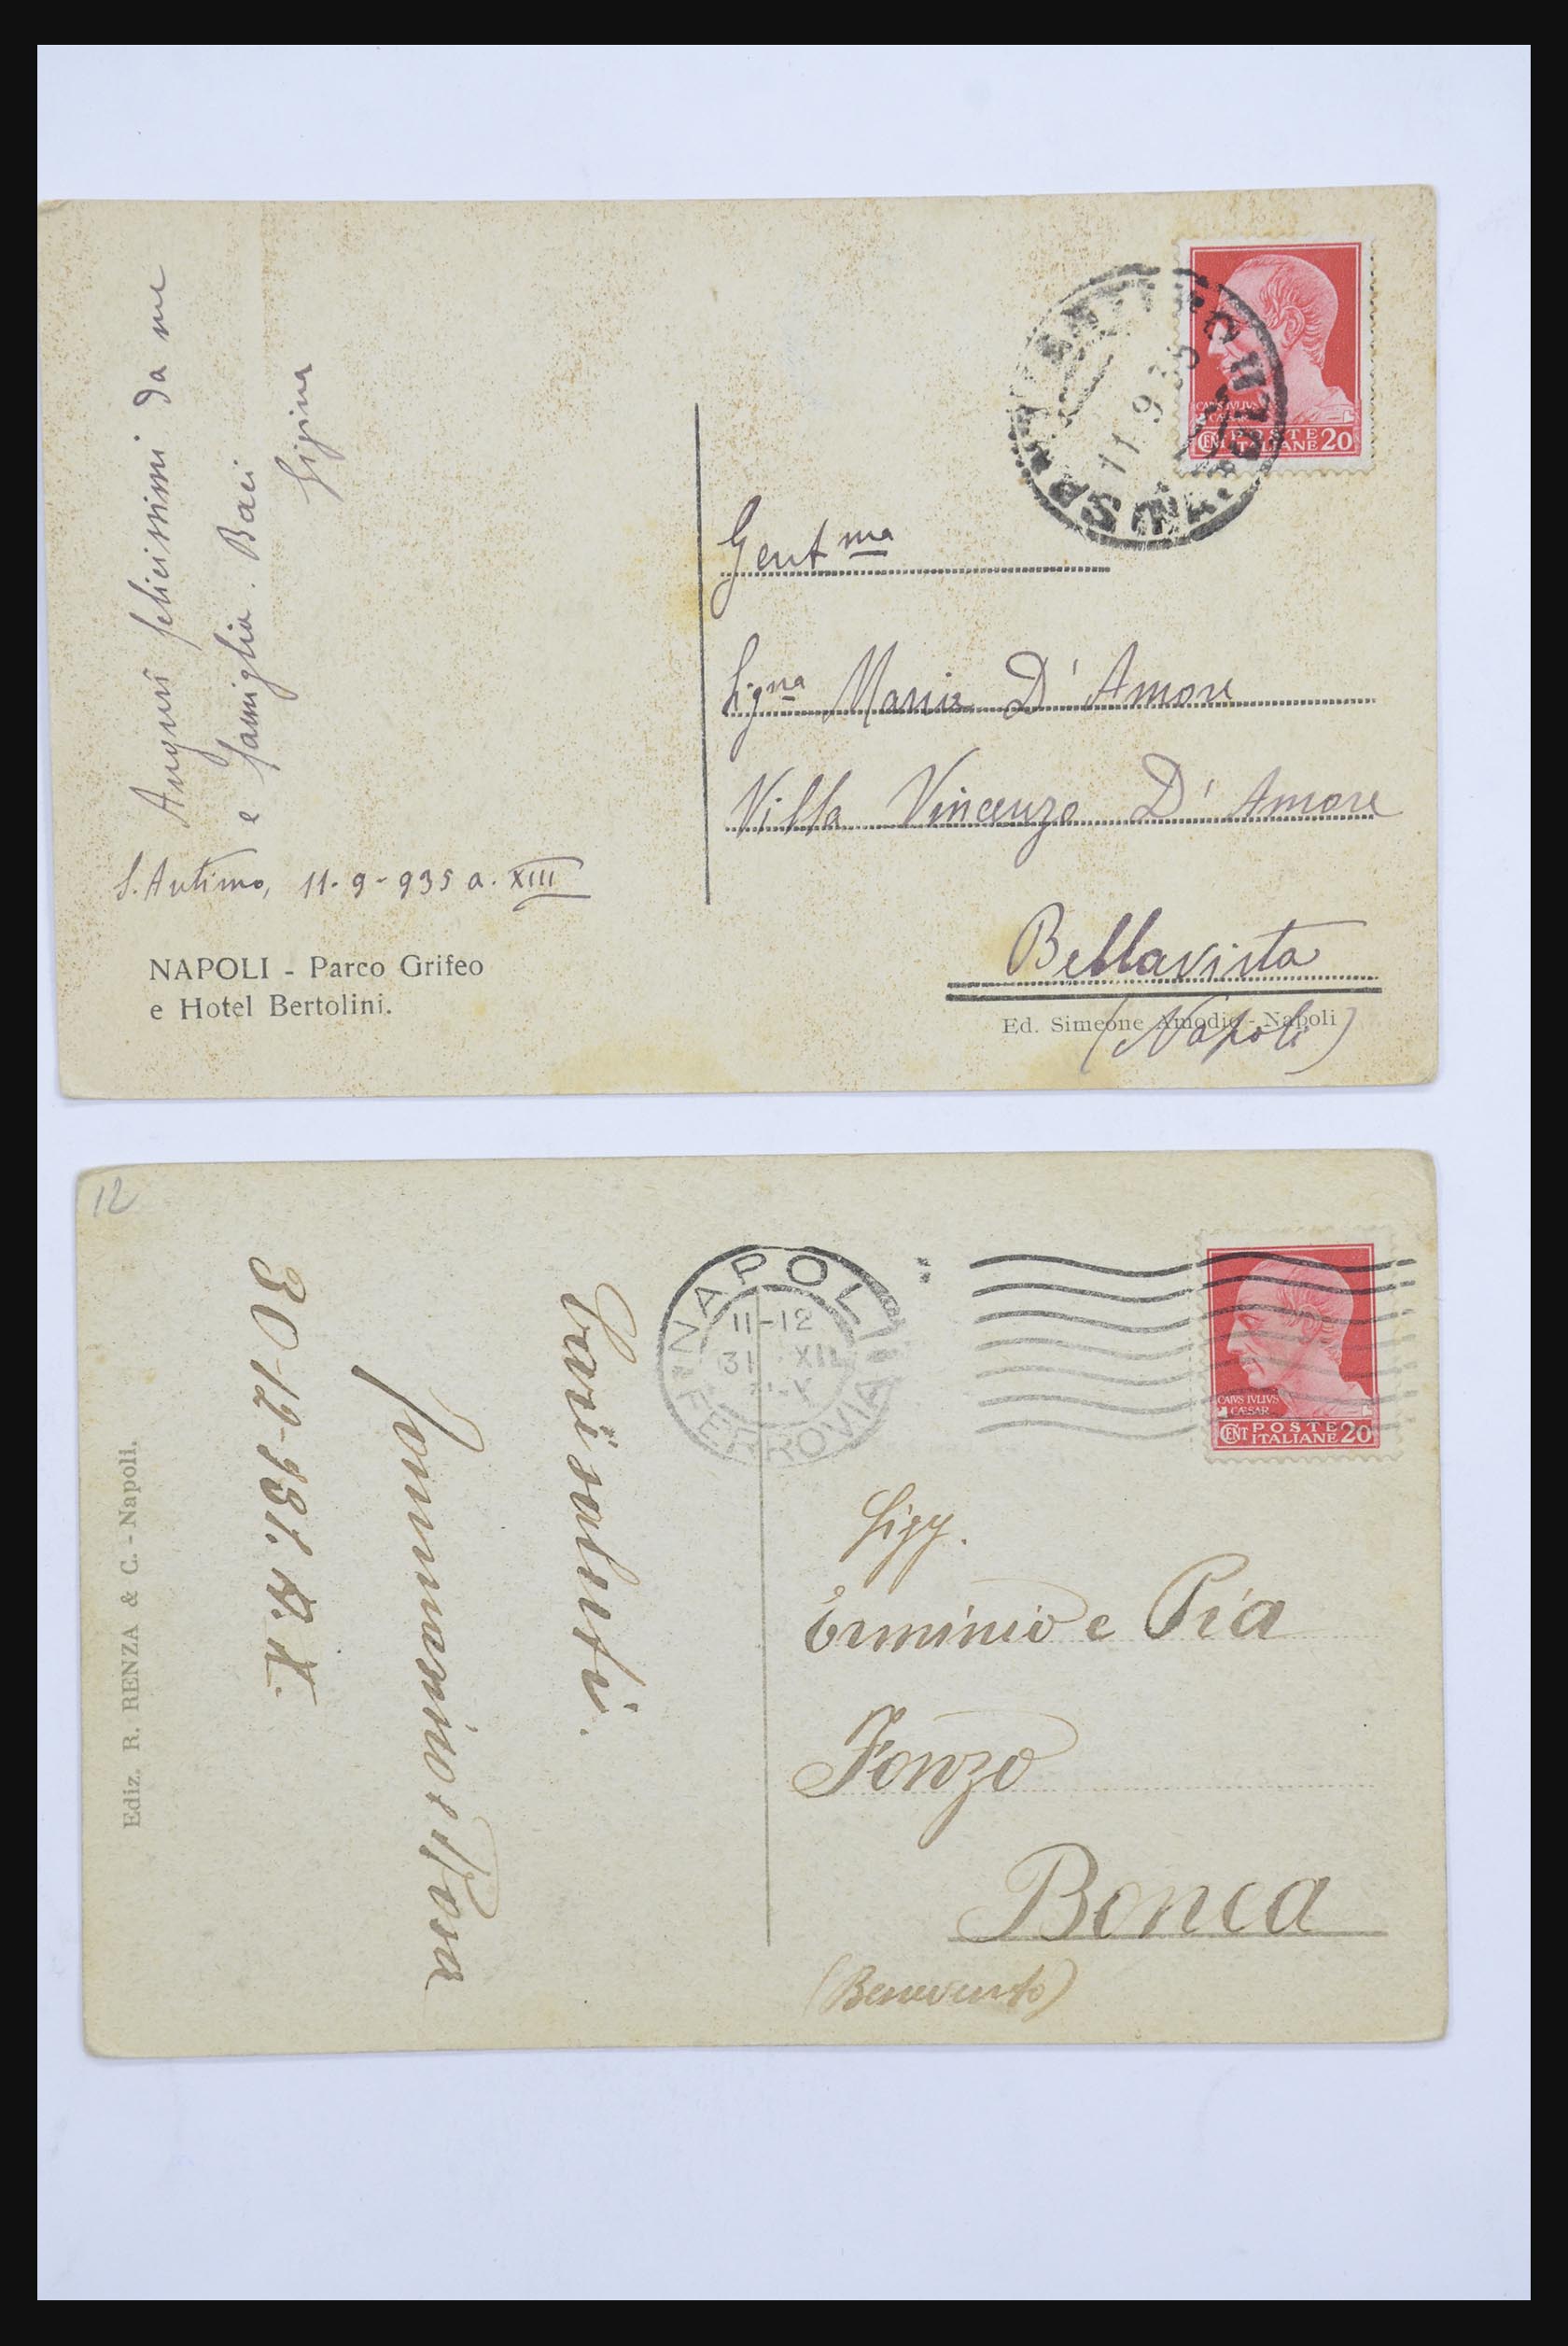 Auguri felicissimi da me
e famiglia. Baci
S. Antimo, 11-9-935 a. XIII
NAPOLI - Parco Grifeo
e Hotel Bertolini.
CAIVS IVLIVS
CÆSAR
CENT POSTE
ITALIANE 20
11.9.35
Gent ma
Sig.na Maria D'Amore
Villa Vincenzo D'Amore
Bellavista
Ed. Simeone Amodio - Napoli
(Napoli)
12
Ediz. R. RENZA & C. - Napoli.
30-12-931. A. X.
Cari saluti.
Rosa
NAPOLI
11-12
31 XII
FERROVIA
CAIVS IVLIVS
CÆSAR
CENT POSTE
ITALIANE 20
Sigg.
Erminio e Pia
Fonzo
Bonea
(Benevento)